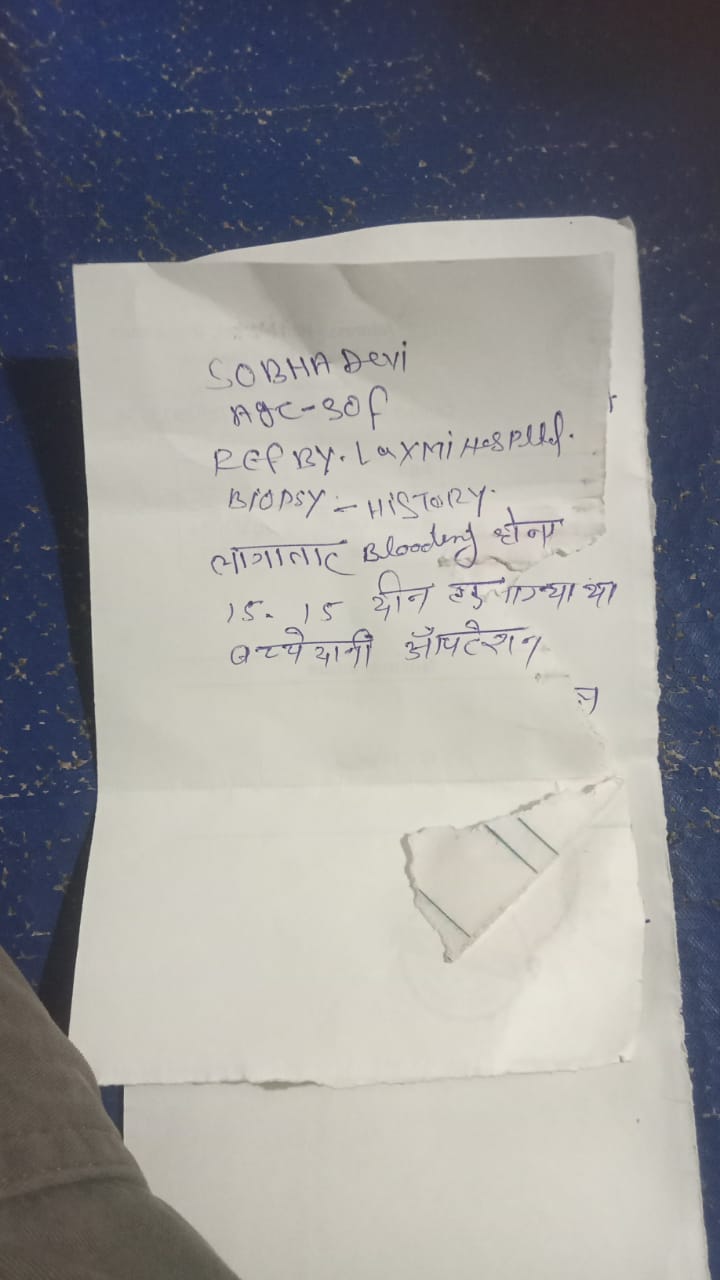 SOBHA Devi
Age-30f
Ref BY. LaXMi HosPital.
BIOPSY - HISTORY.
लागातार Blooding होना
15. 15 दीन
बच्चेदानी ऑपरेशन